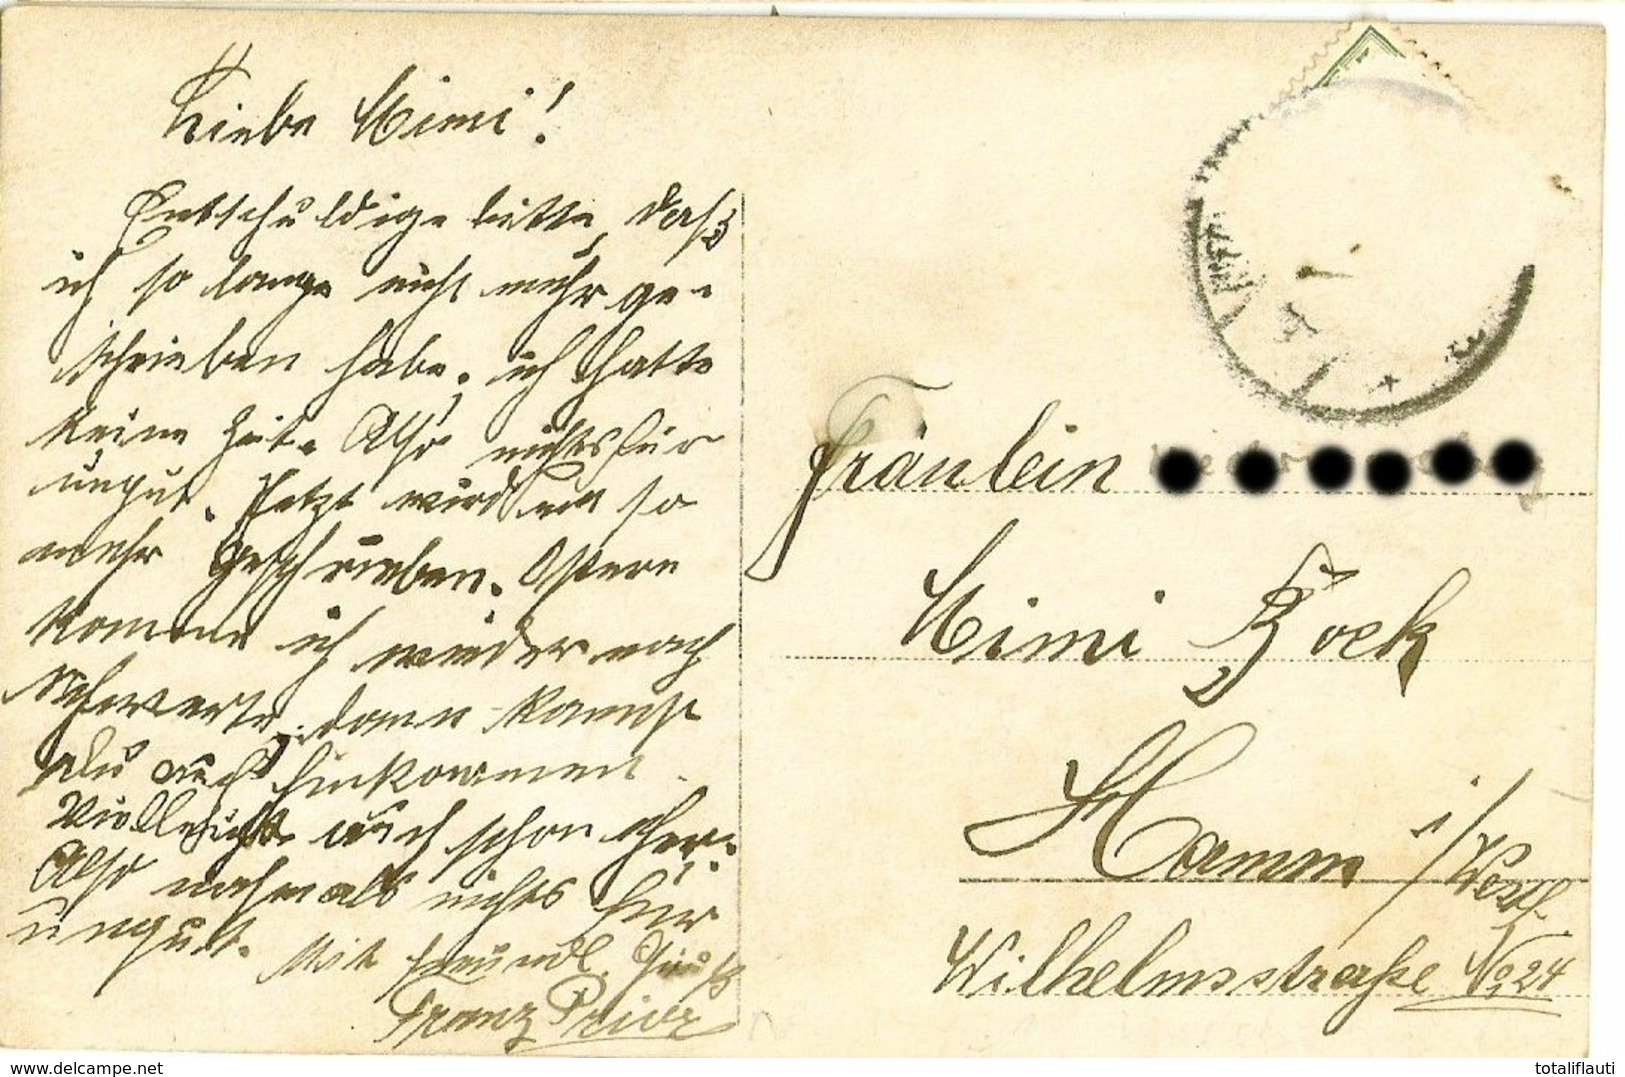 Liebe Mimi!
Entschuldige bitte, daß
ich so lange nicht mehr ge-
schrieben habe, ich hatte
keine Zeit. Also nichts für
ungut. Jetzt wird um so
mehr geschrieben. Ostern
komme ich wieder nach
Schwerte, dann kannst
Du auch hinkommen.
Vielleicht auch schon eher.
Also nochmals nichts für
ungut. Mit freundl. Gruß
Franz Prior
Fräulein
Mimi Bock
Hamm i/Westf.
Wilhelmsstraße No 24
www.delcampe.net
totaliflauti